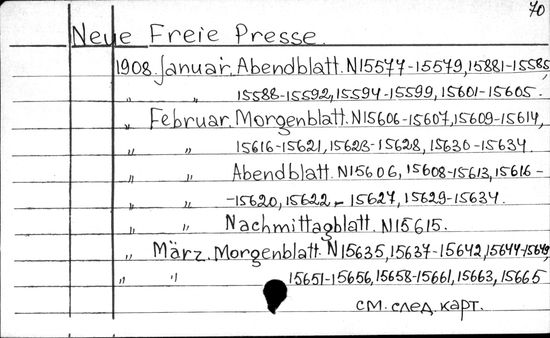 70
Neue Freie Presse.
1908. Januar. Abendblatt. N15577-15579, 15881-15585,
„ „ 15588-15592, 15594-15599, 15601-15605.
„ Februar. Morgenblatt. N15606-15607, 15609-15614,
„ „ 15616-15621, 15623-15628, 15630-15634.
„ „ Abendblatt. N15606, 15608-15613, 15616-
„ „ -15620, 15622-15627, 15629-15634.
„ „ Nachmittagblatt. N15615.
„ März. Morgenblatt. N15635, 15637-15642, 15644-15649,
„ „ 15651-15656, 15658-15661, 15663, 15665
см. след. карт.